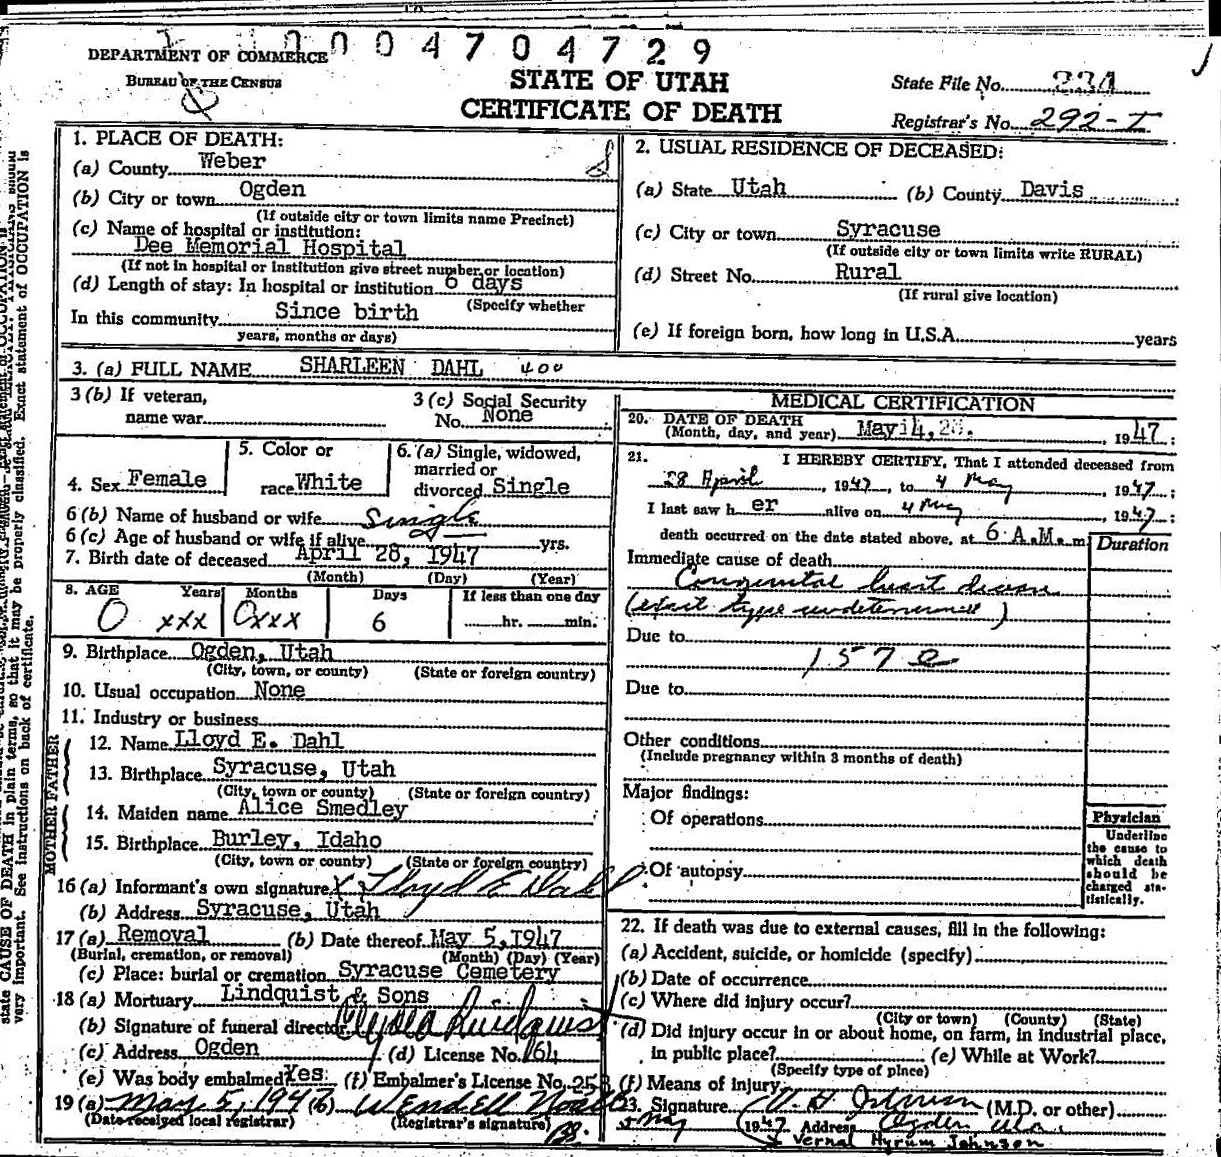 0004704729
DEPARTMENT OF COMMERCE
BUREAU OF THE CENSUS
STATE OF UTAH
CERTIFICATE OF DEATH
State File No. 234
Registrar's No. 292-I
1. PLACE OF DEATH:
(a) County Weber
(b) City or town Ogden
(If outside city or town limits name Precinct)
(c) Name of hospital or institution:
Dee Memorial Hospital
(If not in hospital or institution give street number or location)
(d) Length of stay: In hospital or institution 6 days
(Specify whether
In this community Since birth
years, months or days)
2. USUAL RESIDENCE OF DECEASED:
(a) State Utah (b) County Davis
(c) City or town Syracuse
(If outside city or town limits write RURAL)
(d) Street No. Rural
(If rural give location)
(e) If foreign born, how long in U.S.A. years
3. (a) FULL NAME SHARLEEN DAHL 400
3 (b) If veteran,
name war
3 (c) Social Security
No. None
4. Sex Female
5. Color or
race White
6. (a) Single, widowed,
married or
divorced Single
6 (b) Name of husband or wife Single
6 (c) Age of husband or wife if alive yrs.
7. Birth date of deceased April 28, 1947
(Month) (Day) (Year)
8. AGE Years Months Days If less than one day
0 xxx 0xxx 6 hr. min.
9. Birthplace Ogden, Utah
(City, town, or county) (State or foreign country)
10. Usual occupation None
11. Industry or business
FATHER
12. Name Lloyd E. Dahl
13. Birthplace Syracuse, Utah
(City, town or county) (State or foreign country)
MOTHER
14. Maiden name Alice Smedley
15. Birthplace Burley, Idaho
(City, town or county) (State or foreign country)
16 (a) Informant's own signature x Lloyd E Dahl
(b) Address Syracuse, Utah
17 (a) Removal (b) Date thereof May 5, 1947
(Burial, cremation, or removal) (Month) (Day) (Year)
(c) Place: burial or cremation Syracuse Cemetery
18 (a) Mortuary Lindquist & Sons
(b) Signature of funeral director Clyde Lindquist
(c) Address Ogden (d) License No. 164
(e) Was body embalmed Yes (f) Embalmer's License No. 253
19 (a) May 5, 1947 (b) Wendell
(Date received local registrar) (Registrar's signature)
MEDICAL CERTIFICATION
20. DATE OF DEATH
(Month, day, and year) May 4, 1947;
21. I HEREBY CERTIFY, That I attended deceased from
28 April, 1947, to 4 May, 1947;
I last saw h er alive on 4 May, 1947;
death occurred on the date stated above, at 6 A.M. m
Duration
Immediate cause of death
Congenital heart disease
(exact type undetermined)
Due to
157 e
Due to
Other conditions
(Include pregnancy within 3 months of death)
Major findings:
Of operations
Of autopsy
Physician
Underline
the cause to
which death
should be
charged sta-
tistically.
22. If death was due to external causes, fill in the following:
(a) Accident, suicide, or homicide (specify)
(b) Date of occurrence
(c) Where did injury occur?
(City or town) (County) (State)
(d) Did injury occur in or about home, on farm, in industrial place,
in public place? (e) While at Work?
(Specify type of place)
(f) Means of injury
23. Signature V. H. Johnson (M.D. or other)
5 May 1947 Address Ogden Utah
Vernal Hyrum Johnson
state CAUSE OF DEATH in plain terms, so that it may be properly classified. Exact statement of OCCUPATION is
very important. See instructions on back of certificate.